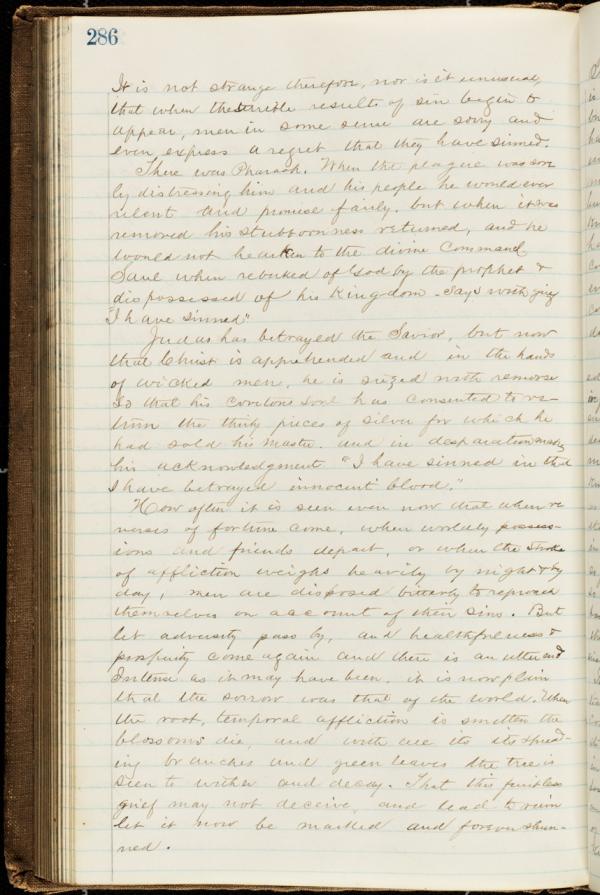 286
It is not strange therefore, nor is it unusual,
that when the terrible results of sin begin to
appear, men in some sense are sorry and
even express a regret that they have sinned.
There was Pharaoh. When the plague was sore
ly distressing him and his people he would ever
relent and promise fairly. but when it was
removed his stubbornness returned, and he
would not hearken to the divine command
Saul when rebuked of God by the prophet &
dispossessed of his Kingdom. Says with grief
"I have sinned".
Judas has betrayed the Savior, but now
that Christ is apprehended and in the hands
of wicked men, he is siezed with remorse
So that his covetous soul has consented to re-
turn the thirty pieces of silver for which he
had sold his Master. and in desparation makes
his acknowledgment "I have sinned in that
I have betrayed innocent blood."
How often it is seen even now that when re
verses of fortune come, when worldly possess-
ions and friends depart, or when the stroke
of affliction weighs heavily by night & by
day, men are disposed bitterly to reproach
themselves on account of their sins. But
let adversity pass by, and healthfulness &
prosperity come again and there is an utter end
Intense as it may have been. it is now plain
that the sorrow was that of the world. When
the root, temporal affliction is smitten the
blossoms die, and with all its its spread-
ing branches and green leaves the tree is
seen to wither and decay. That this fruitless
grief may not deceive, and lead to ruin
let it now be marked and forever shun-
ned.